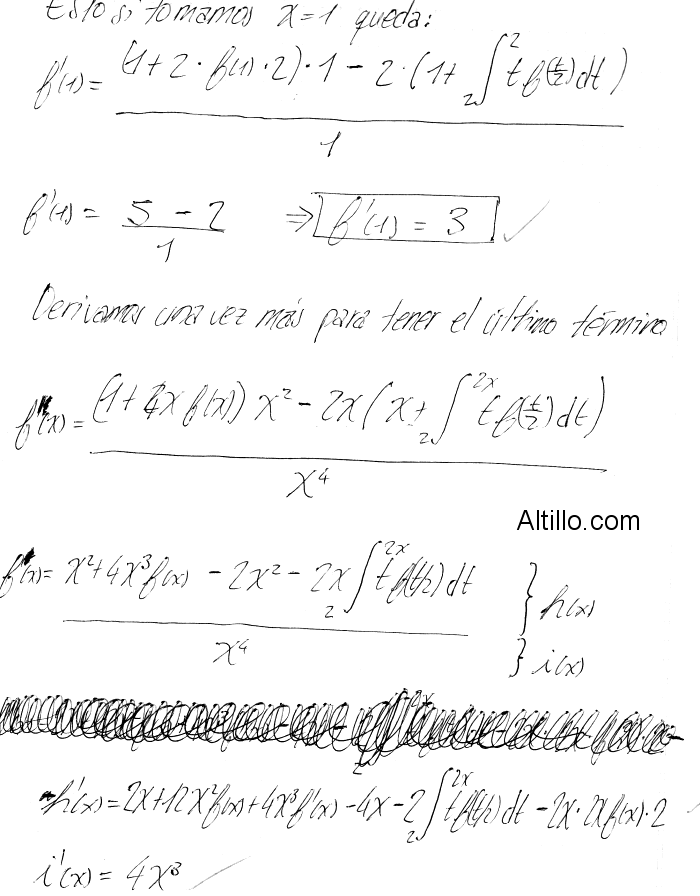 Esto si tomamos x=1 queda:
f'(1) = ((1+2·f(1)·2)·1 − 2·(1+ ₂∫² t f(t/2) dt)) / 1
f'(1) = (5 − 2) / 1 ⇒ f'(1) = 3 ✓
Derivamos una vez más para tener el último término
f'(x) = ((1+4x f(x)) x² − 2x (x + ₂∫²ˣ t f(t/2) dt)) / x⁴
Altillo.com
f'(x) = (x² + 4x³f(x) − 2x² − 2x ₂∫²ˣ t f(t/2) dt) / x⁴ } h(x) } i(x)
h'(x) = 2x+12x²f(x)+4x³f'(x) −4x − 2 ₂∫²ˣ t f(t/2) dt − 2x·2x f(x)·2 ✓
i'(x) = 4x³ ✓